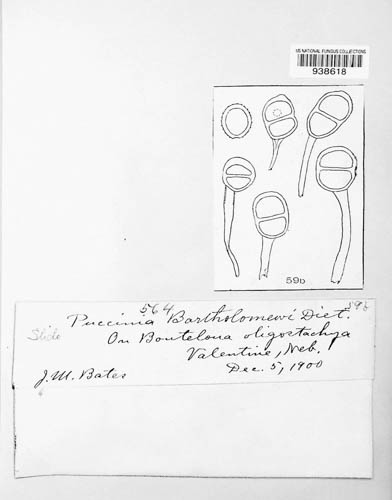 US NATIONAL FUNGUS COLLECTIONS
938618
59b
564
Puccinia Bartholomewi Diet. 59b
Slide
On Bouteloua oligostachya
Valentine, Neb.
J.M. Bates
Dec. 5, 1900